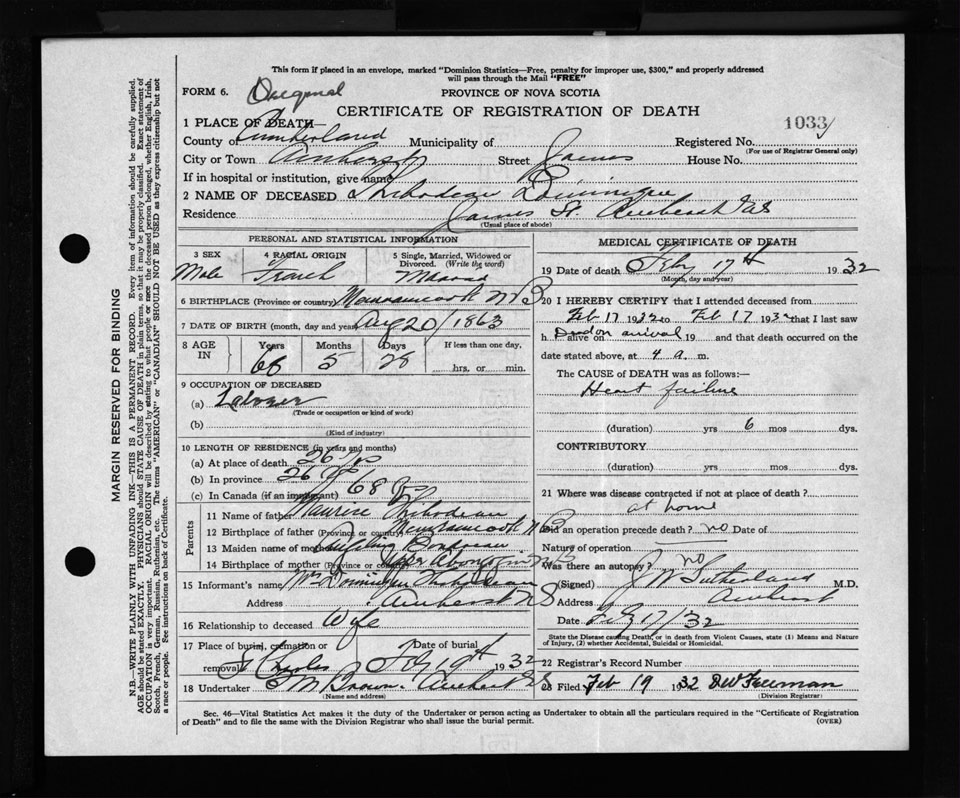 This form if placed in an envelope, marked "Dominion Statistics—Free, penalty for improper use, $300," and properly addressed
will pass through the Mail "FREE"
FORM 6.
PROVINCE OF NOVA SCOTIA
CERTIFICATE OF REGISTRATION OF DEATH
1033
1 PLACE OF DEATH—
County of Cumberland Municipality of Registered No.
(For use of Registrar General only)
City or Town Amherst Street James House No.
If in hospital or institution, give name
2 NAME OF DECEASED Thibodeau Dominique
Residence James St. Amherst NS
(Usual place of abode)
PERSONAL AND STATISTICAL INFORMATION
3 SEX 4 RACIAL ORIGIN 5 Single, Married, Widowed or Divorced. (Write the word)
Male French
6 BIRTHPLACE (Province or country) Memramcook N B
7 DATE OF BIRTH (month, day and year) Aug 20/1863
8 AGE IN Years Months Days If less than one day,
68 5 28 hrs. or min.
9 OCCUPATION OF DECEASED
(a) Laborer
(Trade or occupation or kind of work)
(b)
(Kind of industry)
10 LENGTH OF RESIDENCE (in years and months)
(a) At place of death 26 yrs
(b) In province 26 yrs
(c) In Canada (if an immigrant) 68 yrs
Parents
11 Name of father Maurice Thibodeau
12 Birthplace of father (Province or country) Memramcook N B
13 Maiden name of mother
14 Birthplace of mother (Province or country)
15 Informant's name Mrs Dominique Thibodeau
Address Amherst NS
16 Relationship to deceased Wife
17 Place of burial, cremation or removal St Charles Date of burial Feb 19th 1932
18 Undertaker Brown Amherst NS
(Name and address)
MEDICAL CERTIFICATE OF DEATH
19 Date of death Feby 17th 1932
(Month, day and year)
20 I HEREBY CERTIFY that I attended deceased from
Feb 17 1932 to Feb 17 1932 that I last saw
h alive on Dead on arrival 19 and that death occurred on the
date stated above, at 4 a. m.
The CAUSE of DEATH was as follows:—
Heart failure
(duration) yrs 6 mos dys.
CONTRIBUTORY
(duration) yrs mos dys.
21 Where was disease contracted if not at place of death?
at home
Did an operation precede death? no Date of
Nature of operation
Was there an autopsy? no
(Signed) J W Sutherland M.D.
Address Amherst
Date Feb 17/32
State the Disease causing Death, or in death from Violent Causes, state (1) Means and Nature
of Injury, (2) whether Accidental, Suicidal or Homicidal.
22 Registrar's Record Number
23 Filed Feb 19 1932 DW Freeman
Division Registrar
Sec. 46—Vital Statistics Act makes it the duty of the Undertaker or person acting as Undertaker to obtain all the particulars required in the "Certificate of Registration
of Death" and to file the same with the Division Registrar who shall issue the burial permit.
(OVER)
MARGIN RESERVED FOR BINDING
N.B.—WRITE PLAINLY WITH UNFADING INK—THIS IS A PERMANENT RECORD. Every item of information should be carefully supplied.
AGE should be stated EXACTLY. PHYSICIANS should STATE CAUSE OF DEATH in plain terms, so that it may be properly classified. Exact statement of
OCCUPATION is very important. RACIAL ORIGIN will be described by stating to what people or race the deceased person belonged, whether English, Irish,
Scotch, French, German, Russian, Ruthenian, etc. The terms "AMERICAN" or "CANADIAN" SHOULD NOT BE USED as they express citizenship but not
a race or people. See instructions on back of Certificate.